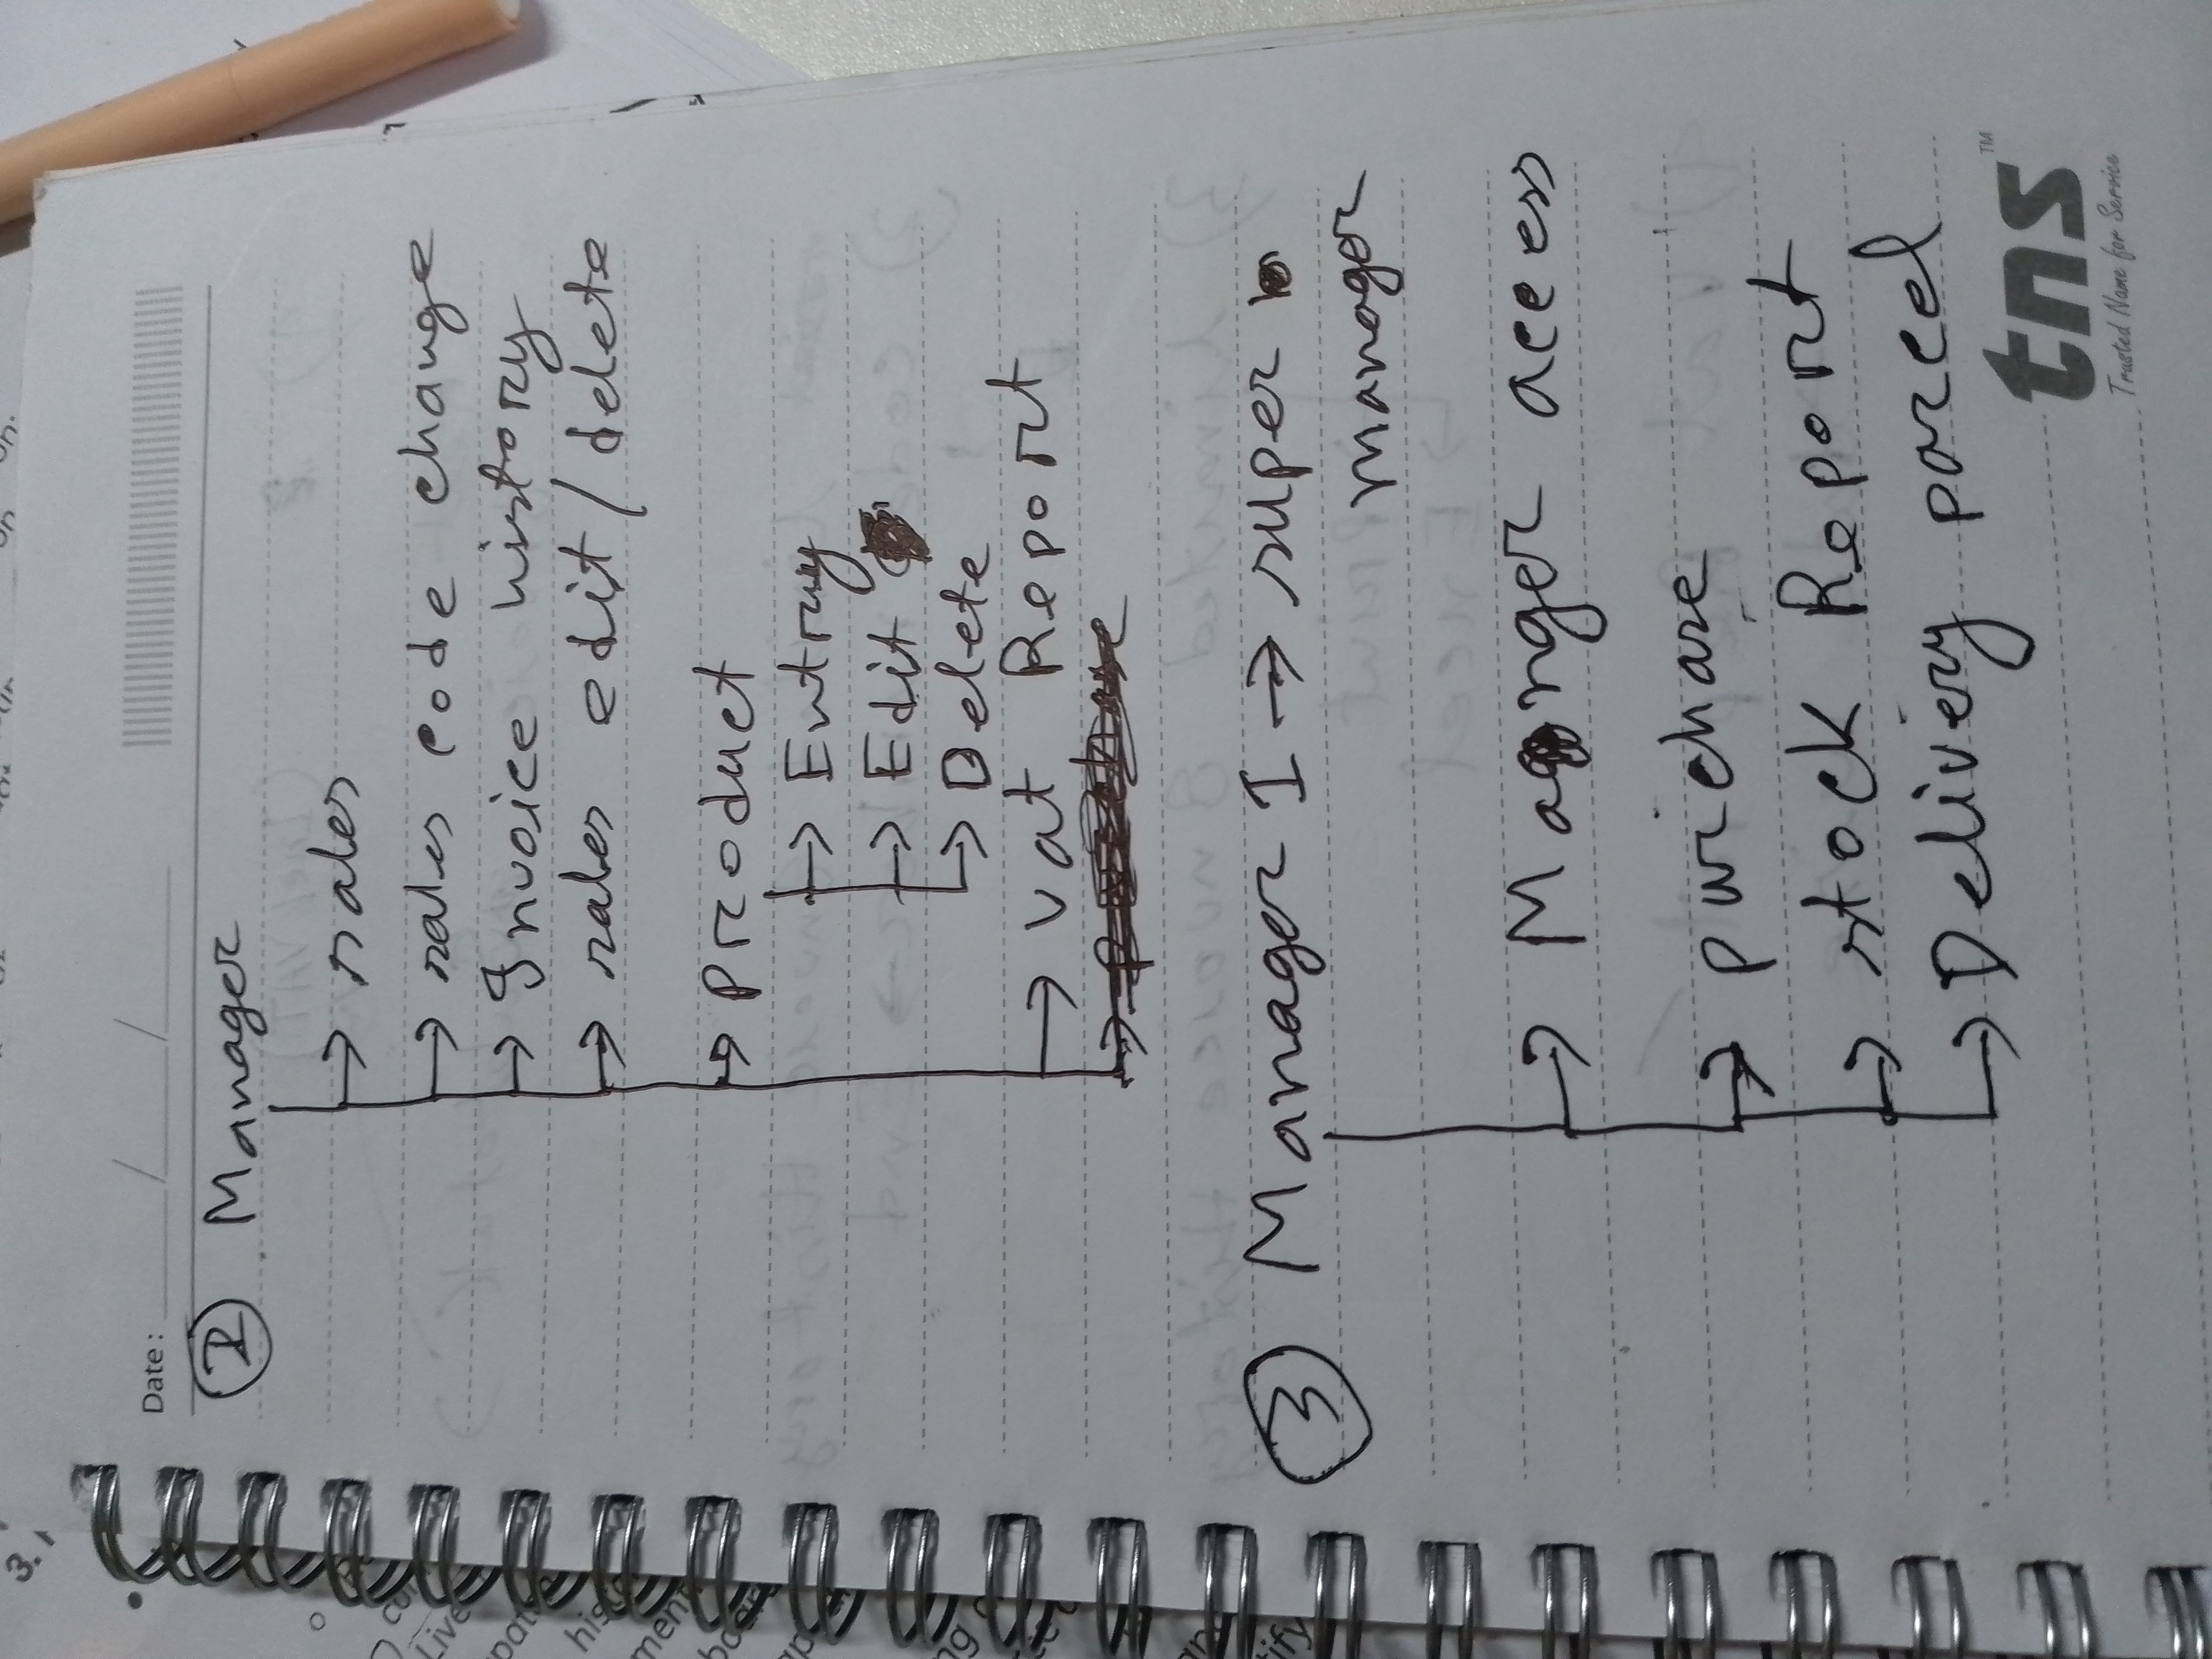 Date: / /
2 Manager
→ sales
→ sales code change
→ Invoice history
→ sales edit / delete
→ Product
→ Entry
→ Edit
→ Delete
→ vat Report
3 Manager I → super
manager
→ Manger acess
→ purchase
→ stock Report
→ Delivery parcel
tns™
Trusted Name for Service